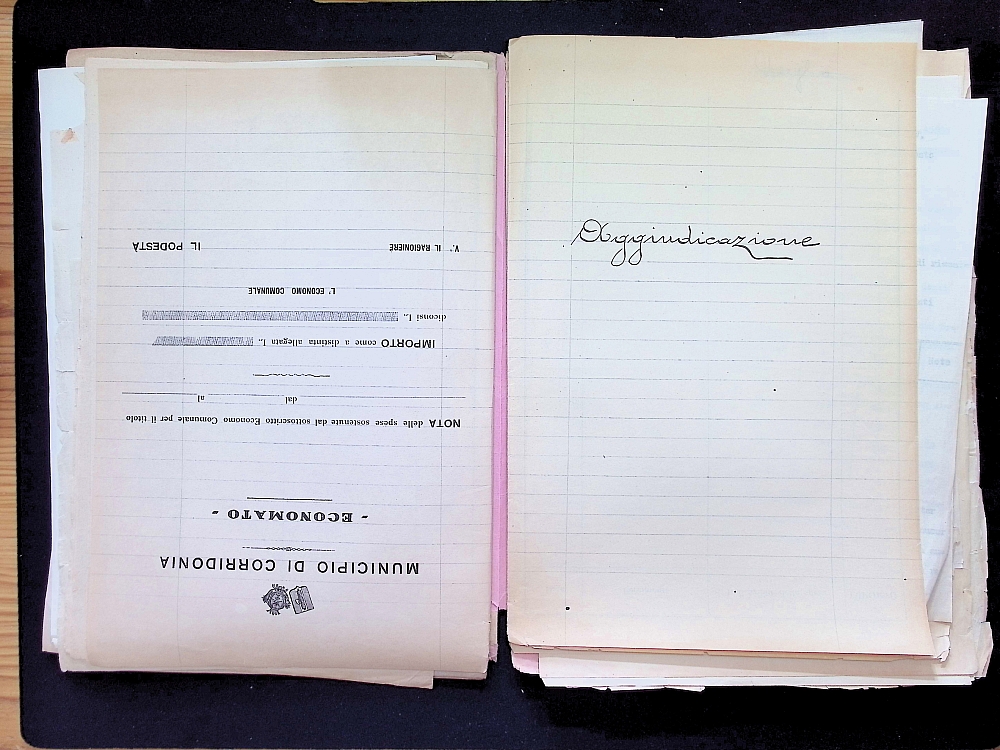 MUNICIPIO DI CORRIDONIA
- ECONOMATO -
NOTA delle spese sostenute dal sottoscritto Economo Comunale per il titolo
dal al
IMPORTO come a distinta allegata L.
diconsi L.
L' ECONOMO COMUNALE
V.° IL RAGIONIERE IL PODESTÀ
Aggiudicazione